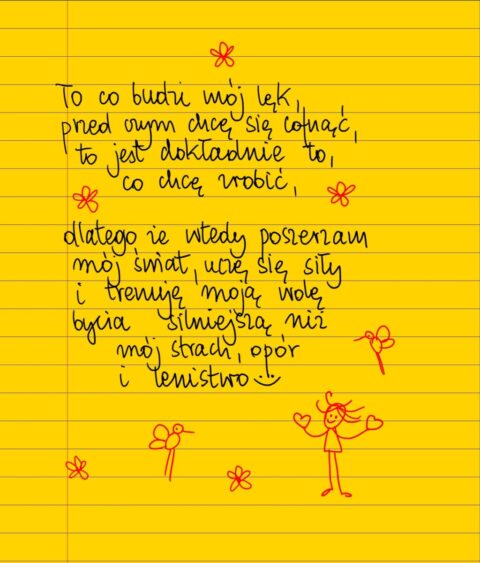 To co budzi mój lęk,
przed czym chcę się cofnąć,
to jest dokładnie to,
co chcę zrobić,
dlatego że wtedy poszerzam
mój świat, uczę się siły
i trenuję moją wolę
bycia silniejszą niż
mój strach, opór
i lenistwo